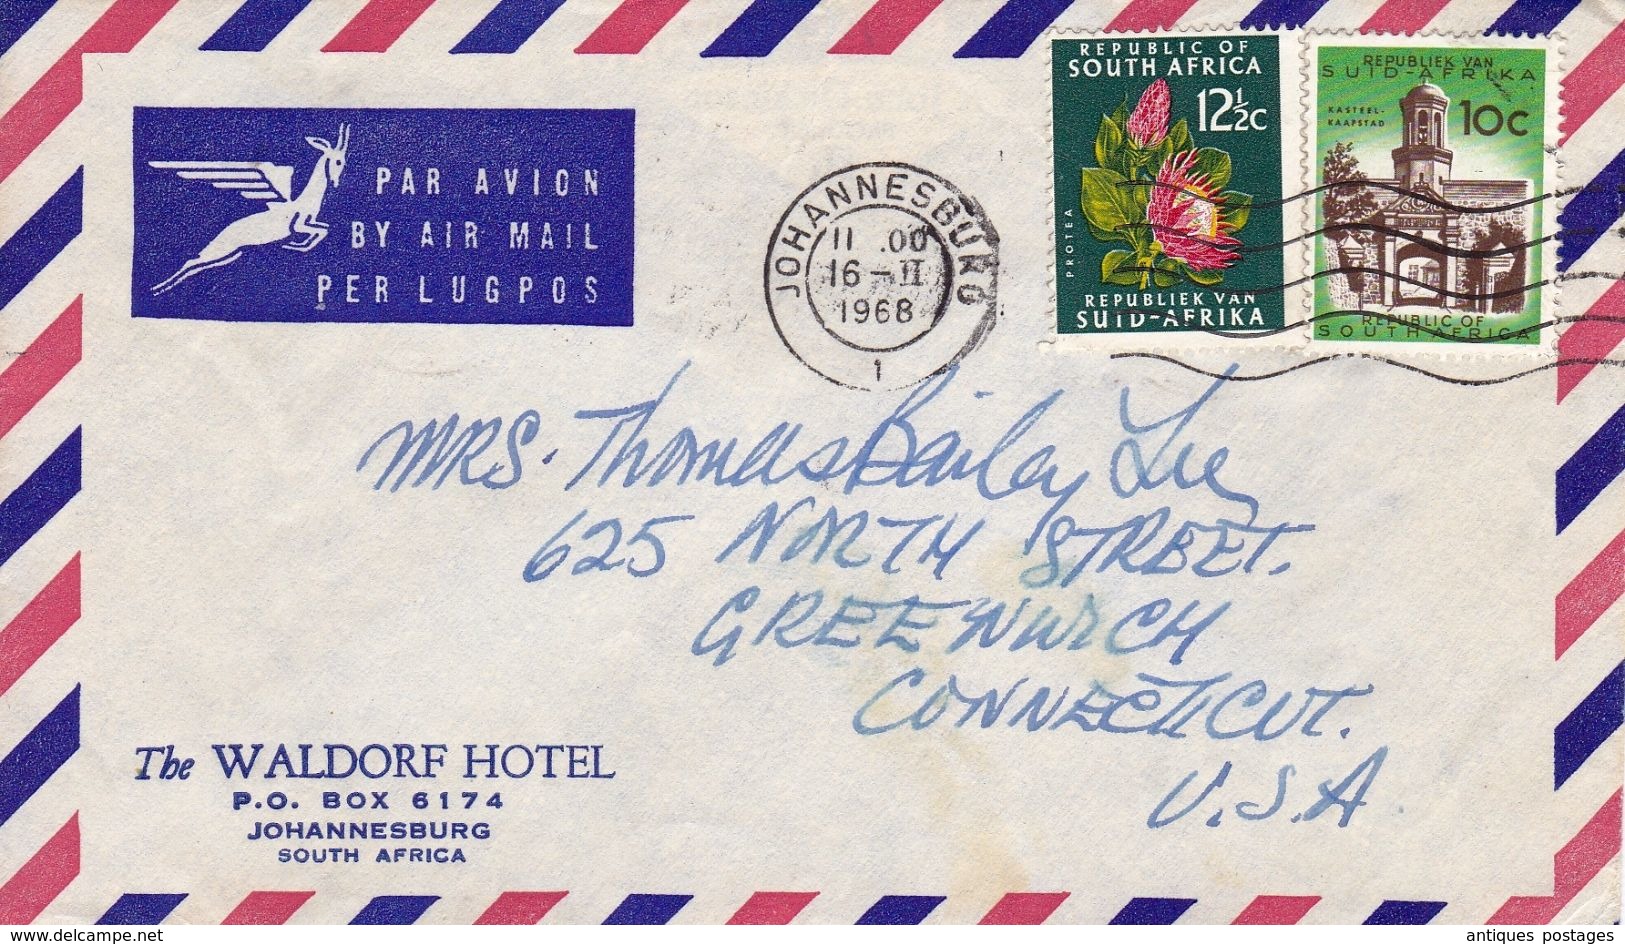 PAR AVION
BY AIR MAIL
PER LUGPOS
JOHANNESBURG
11 .00
16-II
1968
1
REPUBLIC OF
SOUTH AFRICA
12½c
PROTEA
REPUBLIEK VAN
SUID-AFRIKA
REPUBLIEK VAN
SUID-AFRIKA
KASTEEL-
KAAPSTAD
10c
REPUBLIC OF
SOUTH AFRICA
MRS. Thomas Bailey Lee
625 NORTH STREET.
GREENWICH
CONNECTICUT.
U.S.A.
The WALDORF HOTEL
P.O. BOX 6174
JOHANNESBURG
SOUTH AFRICA
www.delcampe.net
antiques postages